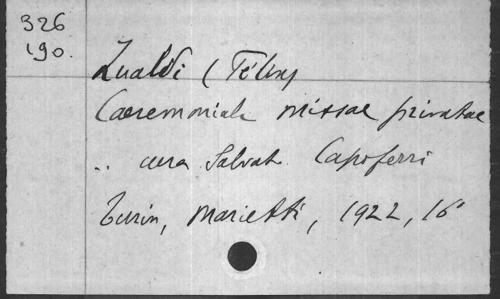 326
190.
Zualdi (Félix)
Caeremoniale missae privatae
.. cura Salvat. Capoferri
Turin, Marietti, 1922, 16°